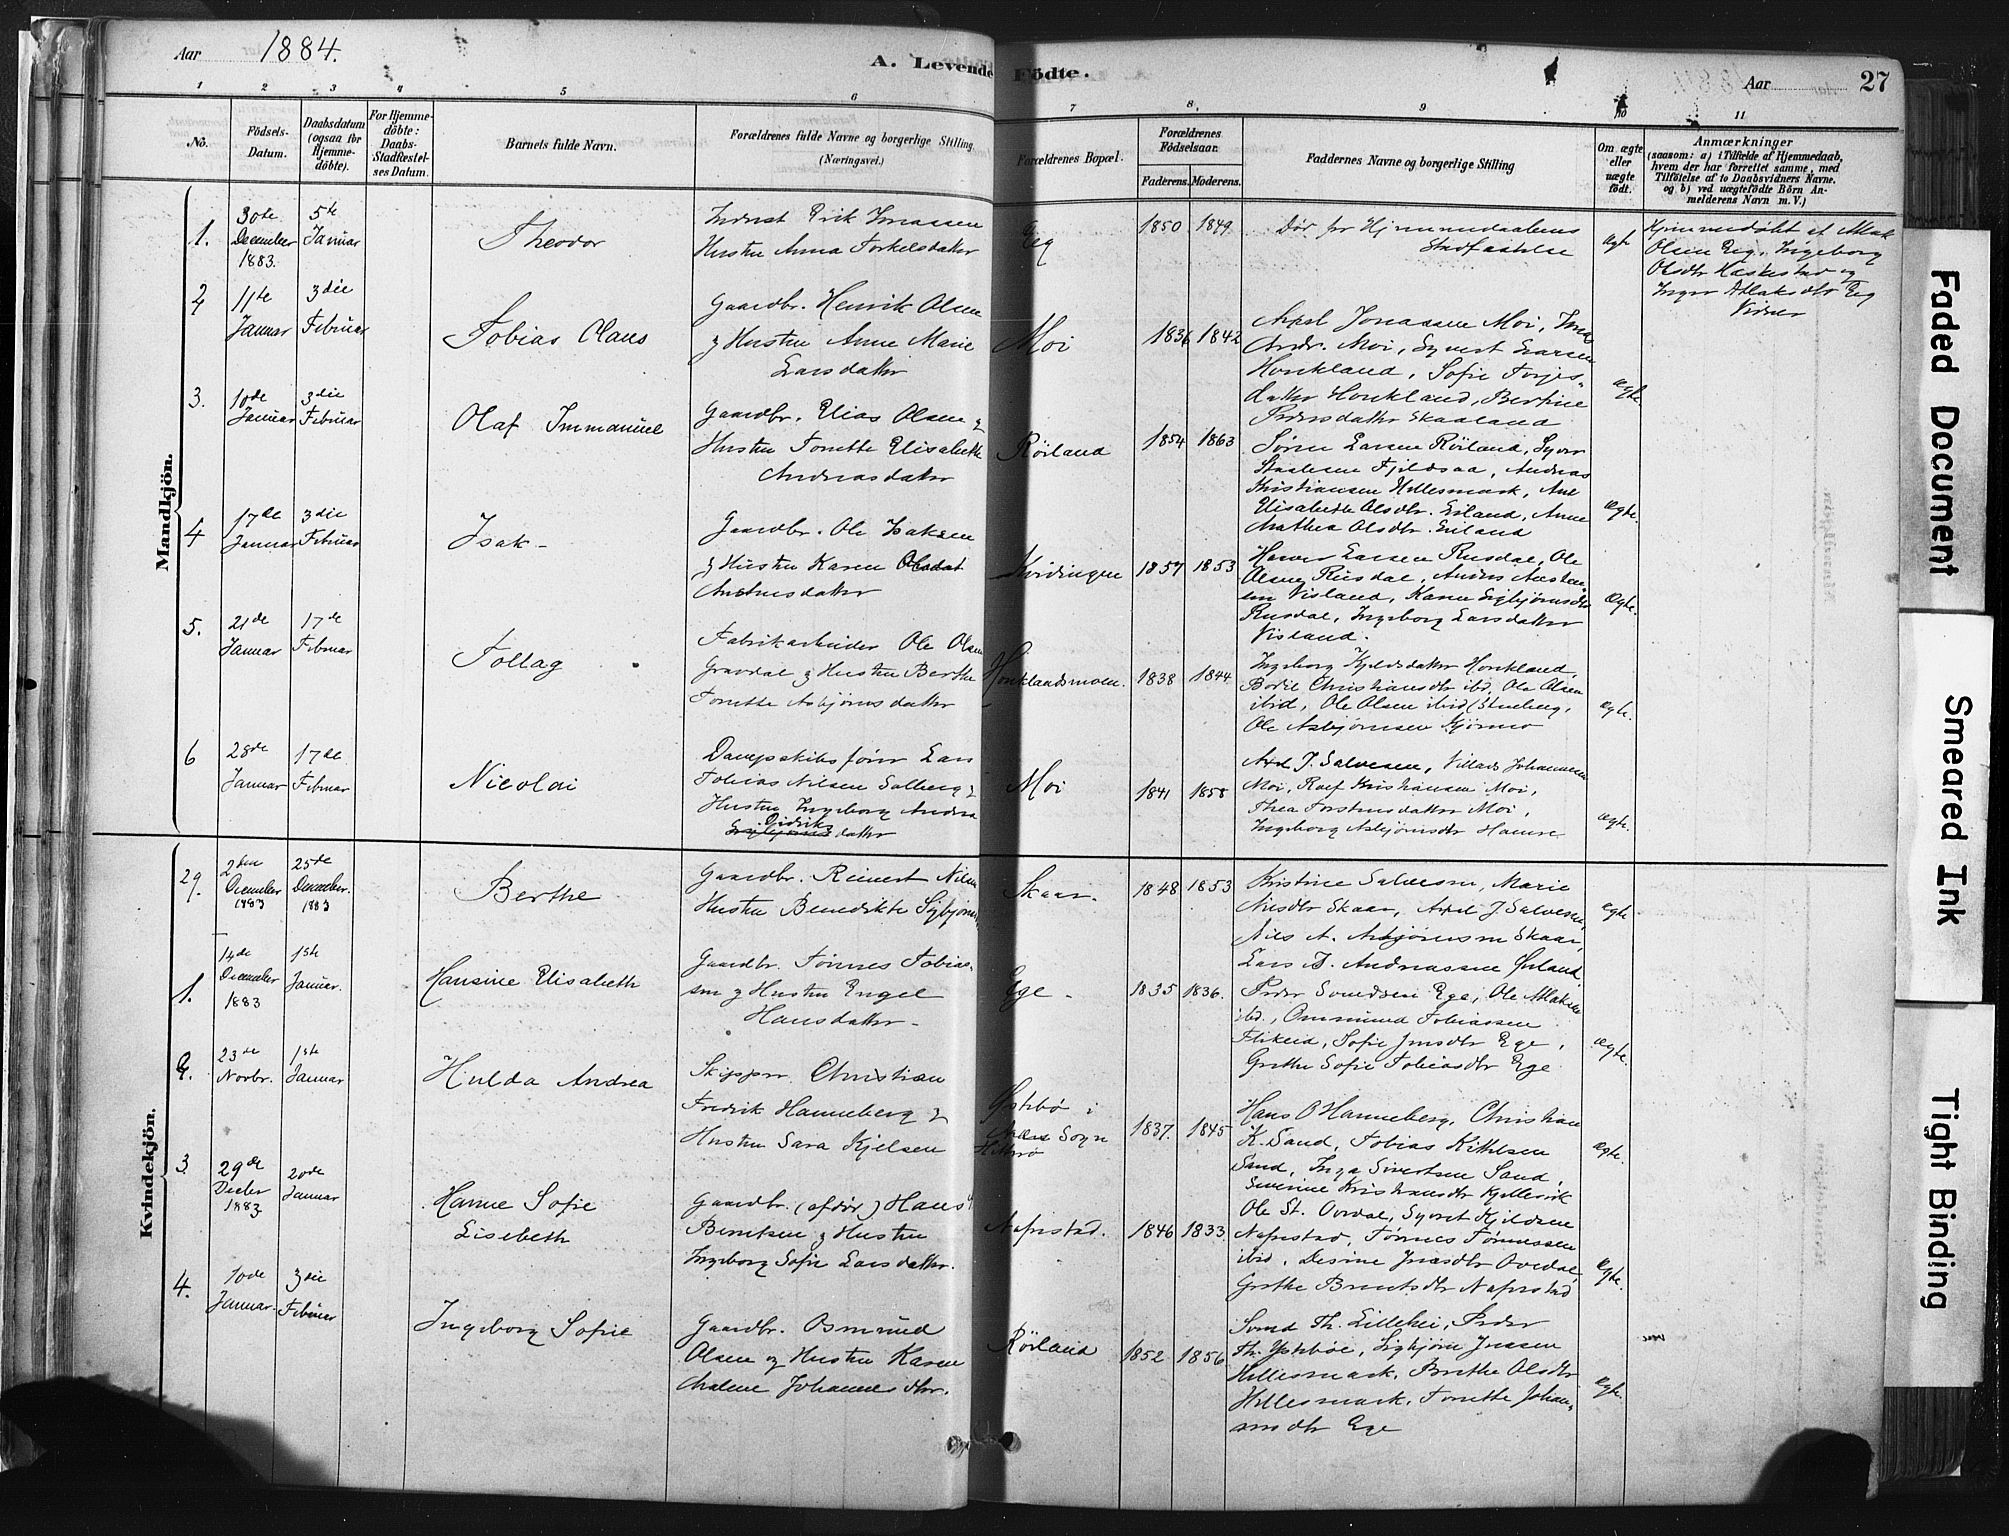 Aar 1884.
A. Levende Födte.
Aar 27
1 2 3 4 5 6 7 8. 9 10 11
No.
Födsels-
Datum.
Daabsdatum
(ogsaa for
Hjemme-
döbte).
For Hjemme-
döbte:
Daabs-
Stadfæstel-
ses Datum.
Barnets fulde Navn.
Forældrenes fulde Navne og borgerlige Stilling
(Næringsvei.)
Forældrenes Bopæl.
Forældrenes
Födselsaar.
Faderens. Moderens.
Faddernes Navne og borgerlige Stilling
Om ægte
eller
uægte
födt.
Anmærkninger
(saasom: a) i Tilfælde af Hjemmedaab,
hvem der har forrettet samme, med
Tilföielse af to Daabsvidners Navne.
og b) ved uægtefödte Börn An-
melderens Navn m. V.)
Mandkjön.
1.
30te
December
1883.
5te
Januar
Theodor
Inderst Erik Jonassen
Hustru Anna Torkelsdatter
Eeg
1850 1849
Død før Hjemmedaabens
Stadfæstelse
ægte
Hjemmedøbt af Atlak
Olsen Eeg, Ingeborg
Olsdtr Haskestad og
Inger Atlaksdtr Eeg
Vidner
2
11te
Januar
3die
Februar
Tobias Olaus
Gaardbr. Henrik Olsen
& Hustru Anne Marie
Larsdatter
Moi
1836 1842
Axel Jonassen Moi, Jonas
Andr. Moi, Syvert Larsen
Honkland, Sofie Torjes-
datter Honkland, Bertine
Pedersdatter Skaaland
ægte
3.
10de
Januar
3die
Februar
Olaf Immanuel
Gaardbr. Elias Olsen &
Hustru Tonette Elisabeth
Andreasdatter
Røiland
1854 1863
Søren Larsen Røiland, Syver
Staalesen Fjeldsaa, Andreas
Kristiansen Hellesmark, Ane
Elisabeth Olsdtr. Eiland, Anne
Mathea Olsdtr. Eiland
Ægte.
4
17de
Januar
3die
Februar
Isak -
Gaardbr. Ole Isaksen
& Hustru Karen Olsdat
Austensdatter
Kvidingen
1857 1853
Haaver Larsen Rusdal, Ole
Olsen Rusdal, Anders Austen
sen Visland, Karen Sigbjørnsdtr
Rusdal, Ingeborg Larsdatter
Visland.
Ægte.
5.
21de
Januar
17de
Februar
Tollag
Fabrikarbeider Ole Olsen
Gravdal & Hustru Berthe
Tonette Asbjørnsdatter
Honklandsmoen.
1838 1844
Ingeborg Kjeldsdatter Honkland,
Bodil Christiansdtr ibd. Ole Olsen
ibid, Ole Olsen ibid (Steneberg,
Ole Asbjørnsen Kjørmo
ægte.
6
28de
Januar
17de
Februar
Nicolai
Dampskibsfører Lars
Tobias Nilsen Salberg &
Hustru Ingeborg Andrea
Didrik
Sigbjørnsdatter
Moi
1841 1858
Axel J. Salvesen, Villads Johannesen
Moi, Roef Kristiansen Moi,
Thea Torstensdatter Moi,
Ingeborg Asbjørnsdtr Hamre
ægte.
Kvindekjön.
29.
2den
December
1883
25de
December.
1883
Berthe
Gaardbr. Reinert Nilsen
Hustru Benedikte Sigbjørns
Skaar.
1848 1853
Kristine Salvesen, Marie
Nilsdtr Skaar, Axel J. Salvesen,
Nils A. Asbjørnsen Skaar,
Lars J. Andreassen Ørland,
ægte
1.
14de
December
1883
1ste
Januar.
Hansine Elisabeth
Gaardbr. Tønnes Tobias-
sen & Hustru Engel
Hansdatter -
Ege -
1835 1836.
Peder Svendsen Ege, Ole Atlaksen
ibd., Ommund Tobiassen
Flikeid, Sofie Jonsdtr Ege,
Grethe Sofie Tobiasdtr Ege
ægte.
2.
23de
Novbr.
1ste
Januar
Hulda Andrea
Skipper Christian
Fredrik Hanneberg &
Hustru Sara Kjelsen
Ystebø i
Anæs Sogn
Hitterø
1837. 1845
Hans O Hanneberg, Christian
K. Sand, Tobias Kithelsen
Sand, Inga Sivertsen Sand,
Severine Kristiansdtr Kjellesvik
ægte.
3.
29de
Decbr
1883
20de
Januar
Hanne Sofie
Lisebeth
Gaardbr. (afdød) Hans
Berntsen & Hustru
Ingeborg Sofie Larsdatter.
Nafrestad.
1846 1833
Ole St. Ovedal, Syvert Kjeldsen
Nafrestad, Tønnes Tønnessen
ibid, Desine Jonasdtr Ovedal,
Grethe Berntsdtr Nafrestad
ægte.
4.
10de
Januar.
3die
Februar
Ingeborg Sofie
Gaardbr. Osmund
Olsen og Hustru Karen
Malene Johannesdtr.
Røiland
1852. 1856.
Svend Th. Lillehei, Peder
Th. Ystebøe, Sigbjørn Jensen
Hellesmark, Berthe Olsdtr
Hellesmark, Tonette Johan-
nesdtr Ege
ægte.
Faded Document
Smeared Ink
Tight Binding